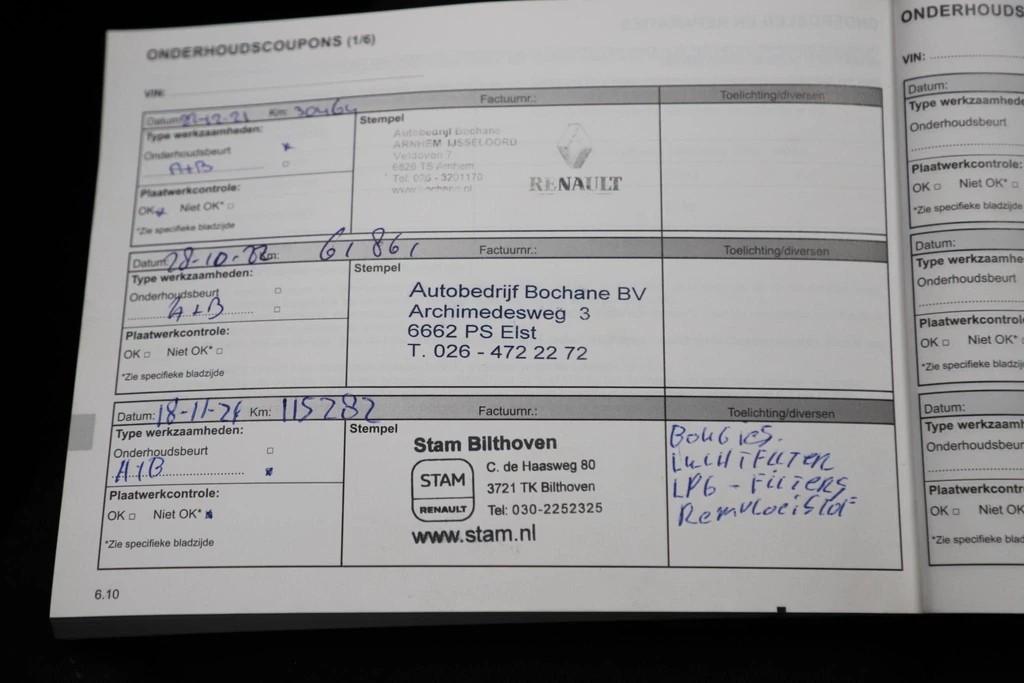 ONDERHOUDSCOUPONS (1/6)
VIN:
Datum: 22-12-21 Km: 30464 Factuurnr.: Toelichting/diversen
Type werkzaamheden:
Onderhoudsbeurt
A+B
Plaatwerkcontrole:
OK Niet OK*
*Zie specifieke bladzijde
Stempel
Autobedrijf Bochane
ARNHEM IJSSELOORD
Veldoven 7
6826 TS Arnhem
Tel. 026 - 3201170
RENAULT
Datum: 28-10-22 Km: 61861 Factuurnr.: Toelichting/diversen
Type werkzaamheden:
Onderhoudsbeurt
A+B
Plaatwerkcontrole:
OK Niet OK*
*Zie specifieke bladzijde
Stempel
Autobedrijf Bochane BV
Archimedesweg 3
6662 PS Elst
T. 026 - 472 22 72
Datum: 18-11-24 Km: 115282 Factuurnr.: Toelichting/diversen
Type werkzaamheden:
Onderhoudsbeurt
A+B
Plaatwerkcontrole:
OK Niet OK*
*Zie specifieke bladzijde
Stempel
Stam Bilthoven
STAM
RENAULT
C. de Haasweg 80
3721 TK Bilthoven
Tel: 030-2252325
www.stam.nl
BOUGIES.
LUCHTFILTER
LPG - FILTERS
Remvloeistof
6.10
ONDERHOUDS
VIN:
Datum:
Type werkzaamhede
Onderhoudsbeurt
Plaatwerkcontrole:
OK Niet OK*
*Zie specifieke bladzijde
Datum:
Type werkzaamhe
Onderhoudsbeurt
Plaatwerkcontrol
OK Niet OK*
*Zie specifieke bladzij
Datum:
Type werkzaamh
Onderhoudsbeur
Plaatwerkcontr
OK Niet OK
*Zie specifieke blad